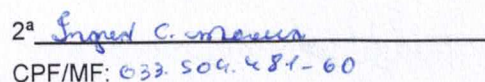 2ª Ingred C.
CPF/MF: 033.504.481-60